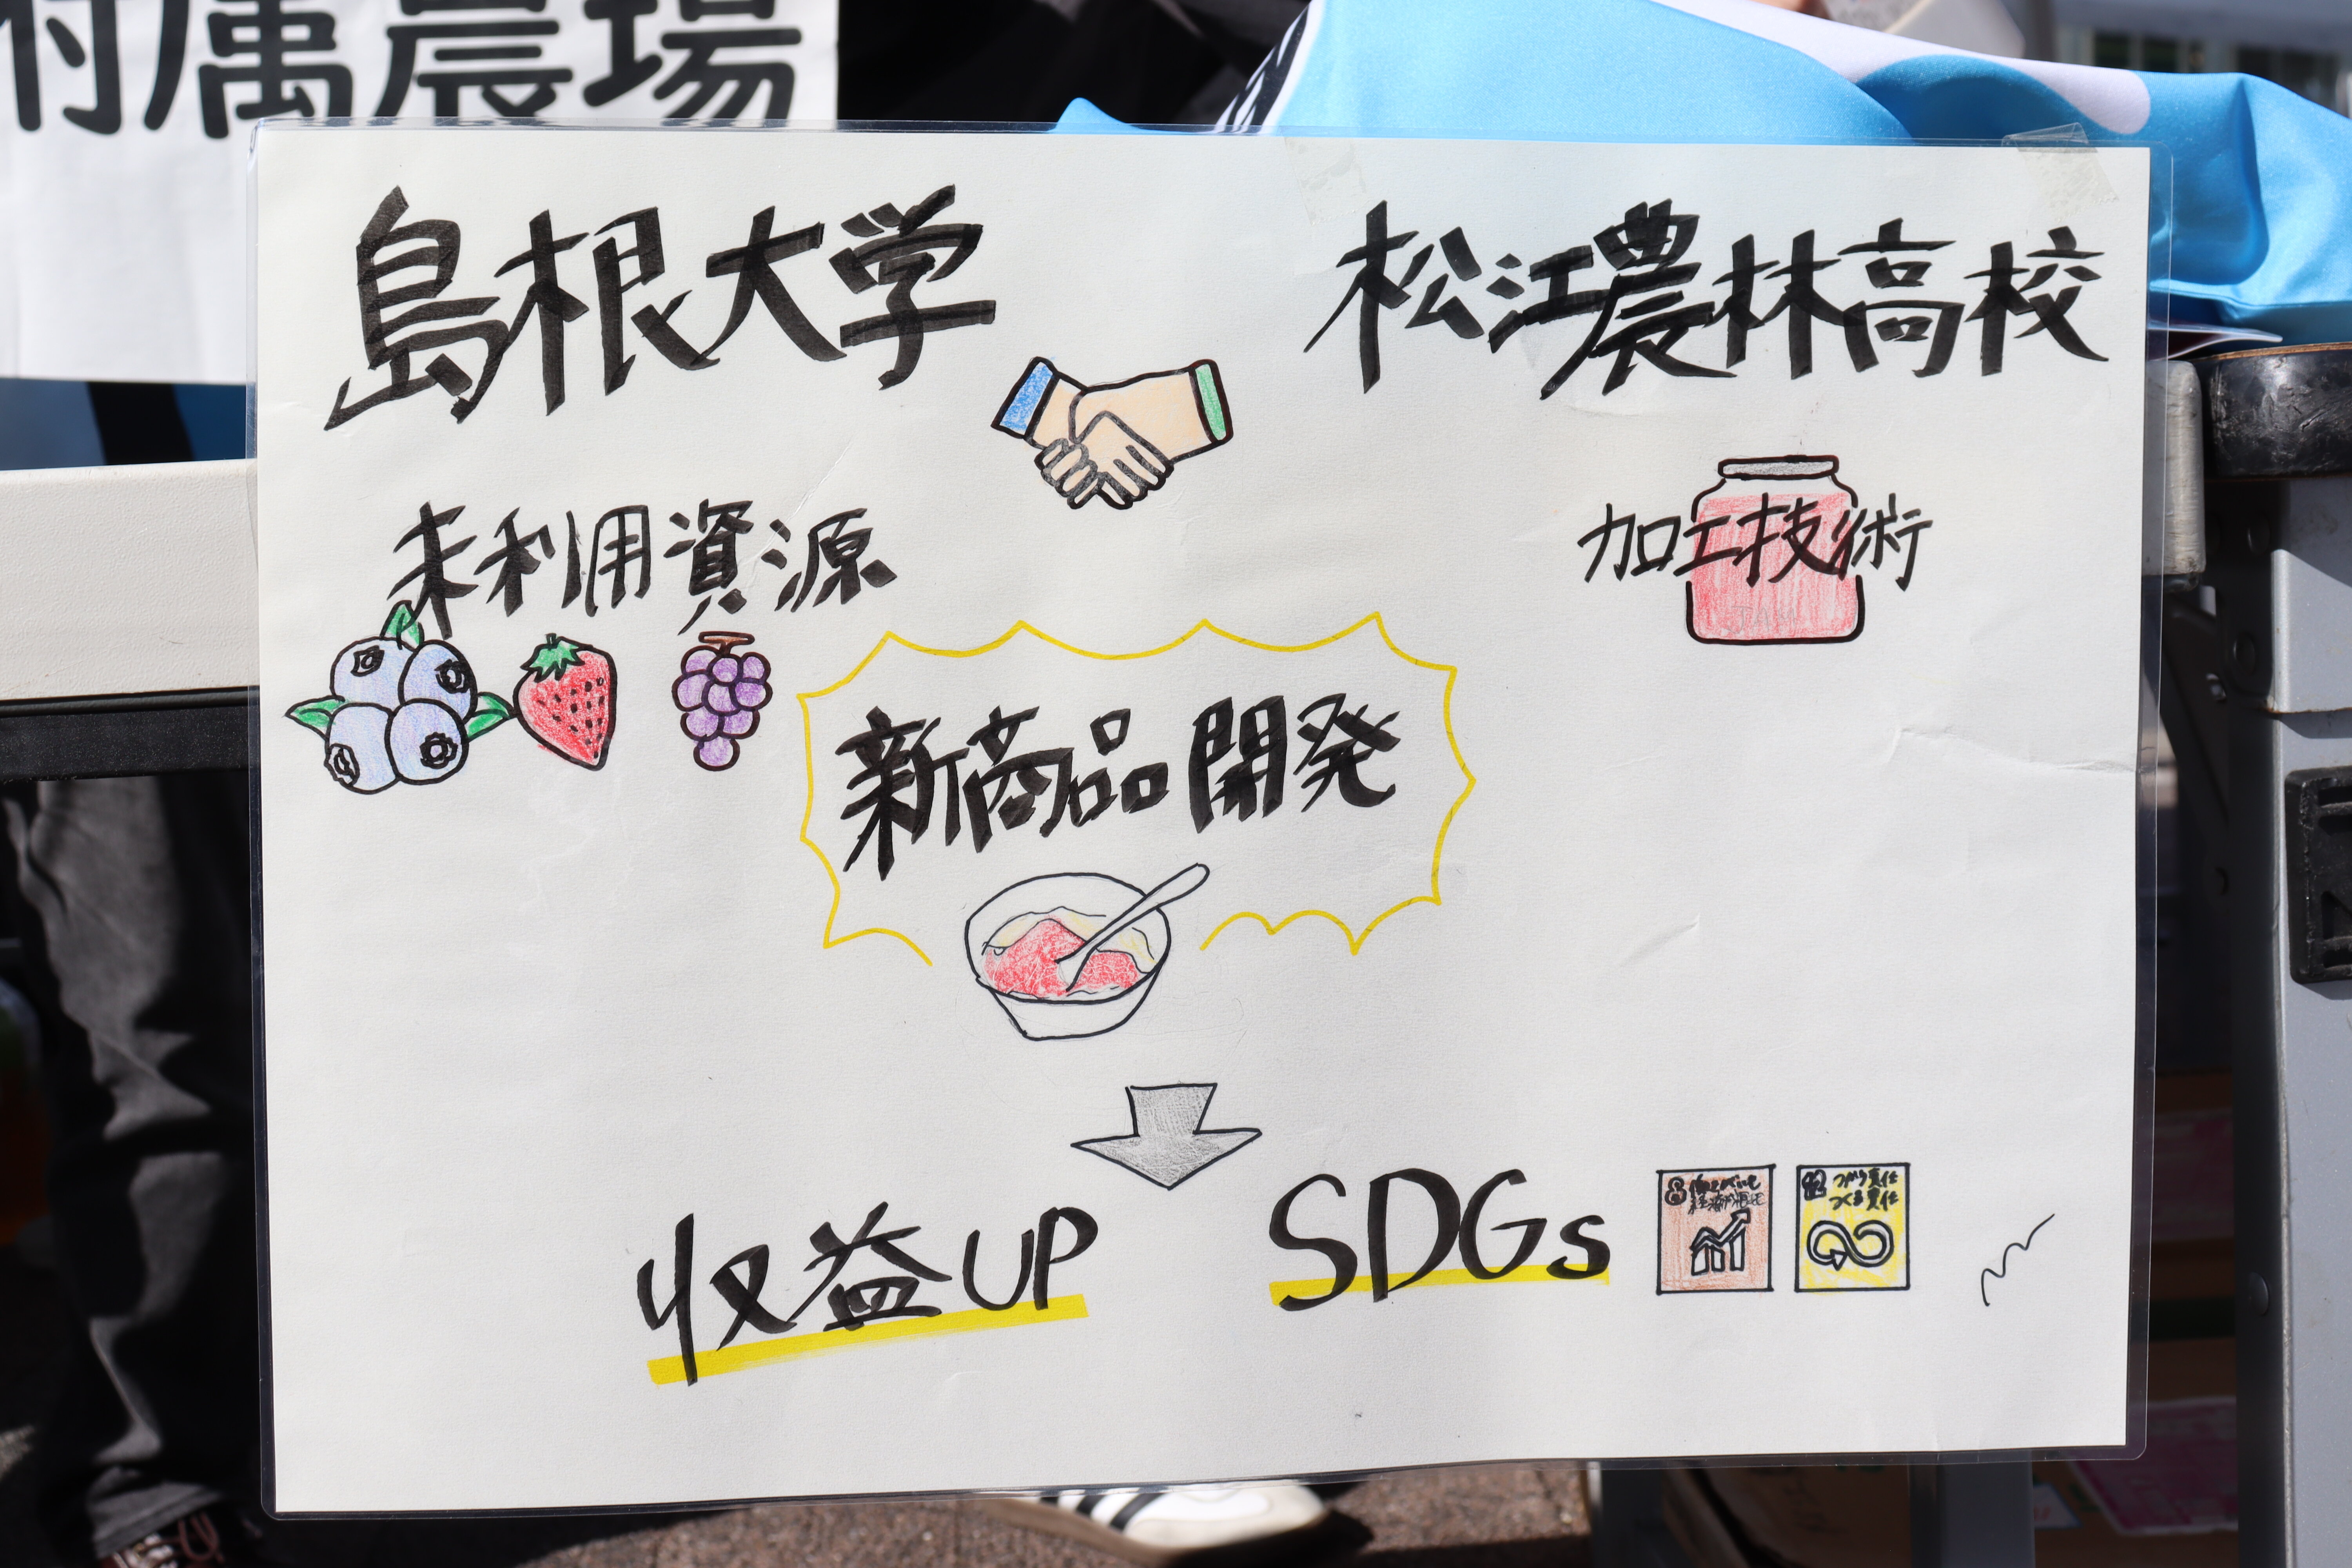 附属農場
島根大学
松江農林高校
未利用資源
加工技術
JAM
新商品開発
収益UP
SDGs
8 働きがいも
経済成長も
12 つかう責任
つくる責任